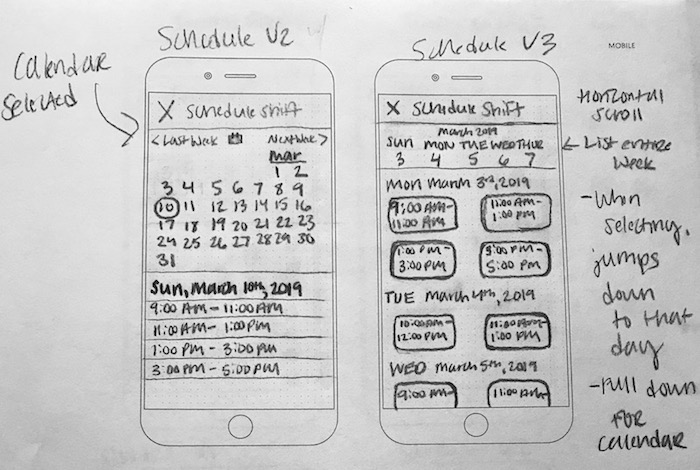 Schedule V2
Calendar
Selected
X Schedule Shift
< Last Week Next Week >
Mar
1 2
3 4 5 6 7 8 9
10 11 12 13 14 15 16
17 18 19 20 21 22 23
24 25 26 27 28 29 30
31
Sun, March 10th, 2019
9:00 AM - 11:00 AM
11:00 AM - 1:00 PM
1:00 PM - 3:00 PM
3:00 PM - 5:00 PM
Schedule V3
MOBILE
X Schedule Shift
March 2019
Sun MON TUE WED THUR
3 4 5 6 7
MON March 3rd, 2019
9:00 AM-
11:00 AM
11:00 AM-
1:00 PM
1:00 PM-
3:00 PM
3:00 PM-
5:00 PM
TUE March 4th, 2019
10:00 AM-
12:00 PM
11:00 AM-
1:00 PM
WED March 5th, 2019
9:00 AM-
11:00 AM-
Horizontal
Scroll
List entire
week
- When
selecting,
jumps
down
to that
day
- Pull down
FOR
calendar